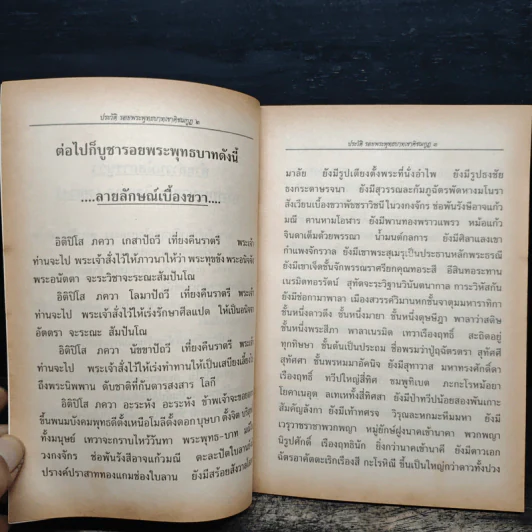 ประวัติ รอยพระพุทธบาทเขาคิชฌกูฏ ๒
ต่อไปก็บูชารอยพระพุทธบาทดังนี้
....ลายลักษณ์เบื้องขวา....
อิติปิโส ภควา เกสาปัถวี เที่ยงคืนราตรี พระเจ้า
ท่านจะไป พระเจ้าสั่งไว้ให้ภาวนาให้ว่า พระทุขขัง พระอนิจจัง
พระอนัตตา จะระวิชาจะระณะสัมปันโณ
อิติปิโส ภควา โลมาปัถวี เที่ยงคืนราตรี พระเจ้า
ท่านจะไป พระเจ้าสั่งไว้ให้เร่งรักษาศีลแปด ให้เป็นอนิจจา
อัตตรา จะระณะ สัมปันโณ
อิติปิโส ภควา นัขขาปัถวี เที่ยงคืนราตรี พระเจ้า
ท่านจะไป พระเจ้าสั่งไว้ให้เร่งทำทานให้เป็นเสบียงเลี้ยง
ถึงพระนิพพาน ดับชาติที่กันดารสงสาร โลกี
อิติปิโส ภควา อะระหัง อะระหัง ข้าพเจ้าจะขอ
ขึ้นพนมบังคมพุทธดีตั้งเหนือโมลีตั้งดอก บุษบา ตั้งจิต
ทั้งมนุษย์ เทวาจะกราบไหว้วันทา พระพุทธ-บาท
วงกงจักร ช่อพันรังสีอาจแก้วมณี ตะละปัตใบลาน
ปรางค์ปราสาททองแกมช่องใบลาน ยังมีสร้อยสังวาล
ประวัติ รอยพระพุทธบาทเขาคิชฌกูฏ ๓
มาลัย ยังมีรูปเตียงตั้งพระที่นั่งอำไพ ยังมีรูปธงชัย
ธงกระดาษรจนา ยังมีสุวรรณละกัมภูฉัตรพัดหางมโนรา
สังเวียนเบื้องขวาพัชชราวิชนี ในวงกงจักร ช่อพันรังษีอาจแก้ว
มณี คานหามโอฬาร ยังมีพานทองพราวแพรว หม้อแก้ว
จินดาเต็มด้วยพรรณา น้ำมนต์กลการ ยังมีศิลาแลงเขา
กำแพงจักรวาล ยังมีเขาพระสุเมรุเป็นประธานหลักพระธรณี
ยังมีเขาเจ็ดชั้นจักรพรรณราศรียกคุณทอระสี อีสินทอระทาน
เนรมิตทอรัตน์ สุทัดจะระวิฐานวินันตนากาล การะวิหสักัน
ยังมีช่อกามาพาลา เมืองสวรรค์วิมานหกชั้นจาตุมมหาราทิกา
ชั้นหนึ่งดาวดึง ชั้นหนึ่งมายา ชั้นหนึ่งดุษฎิฎา พาลาว่าสดิษ
ชั้นหนึ่งพระสีภา พาลาเนรมิต เทวาเรืองฤทธิ์ สะถิตอยู่
ทุกทิษา ชั้นต้นเป็นประถม ชื่อพรมว่าปู่ฤฉัตรตรา สุทัศศี
สุทัศศา ชั้นพรหมมาอัคนิจ ยังมีสุทาวาส มหาทรงศักดิ์ดา
เรืองฤทธิ์ ทวีปใหญ่สี่ทิศ ชมพูทิเบต ภะกะโรหม้อยา
โยคาเนอุต ลเทเหทั้งสี่ทิศสา ยังมีป่าทวีปน้อยสองพันเกาะ
สัมคัญลังกา ยังมีเท้าทศรจ วิรุณละหกมะหิมมหา ยังมี
เวรุวาชราชาพวกพญา หมู่ยักษ์ฝูงนาคเข้านาคา พวกพญา
นิรูปศักดิ์ เรืองฤทธินัก ยิ่งกว่านาคเข้านาคี ยังมีดาวเอก
ฉัตรอาคัตตะเริกเรืองสี กะโรหิณี ขึ้นเป็นใหญ่กว่าดาวทั้งปวง